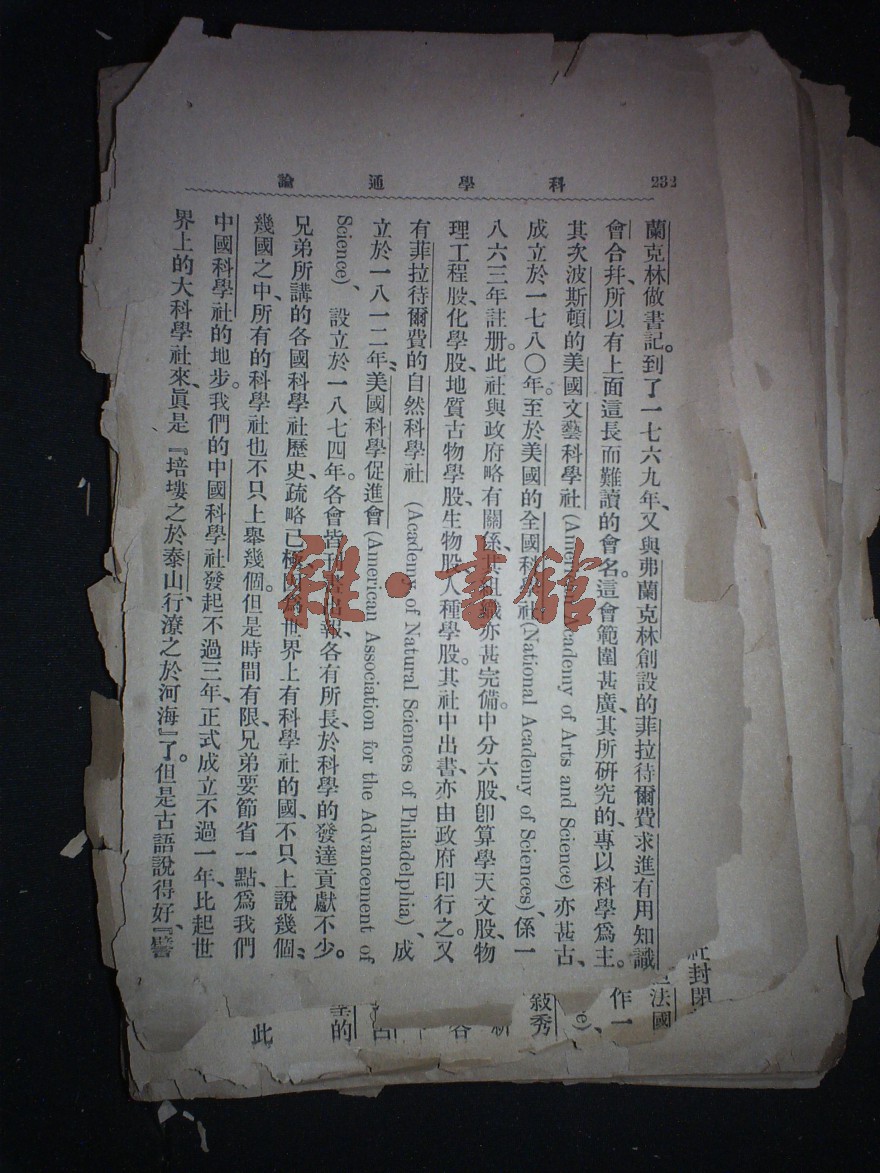 科學通論
232
蘭克林做書記。到了一七六九年、又與弗蘭克林創設的菲拉待爾費求進有用知識
會合幷、所以有上面這長而難讀的會名。這會範圍甚廣、其所硏究的、專以科學爲主。
其次波斯頓的美國文藝科學社 (American Academy of Arts and Science) 亦甚古、
成立於一七八〇年。至於美國的全國科學社(National Academy of Sciences)、係一
八六三年註册。此社與政府略有關係、其組織亦甚完備。中分六股、卽算學天文股、物
理工程股、化學股、地質古物學股、生物股、人種學股。其社中出書、亦由政府印行之。又
有菲拉待爾費的自然科學社 (Academy of Natural Sciences of Philadelphia)、成
立於一八一二年、美國科學促進會 (American Association for the Advancement of
Science)、設立於一八七四年。各會皆刊書出報、各有所長、於科學的發達貢獻不少。
兄弟所講的各國科學社歷史、疏略已極、因爲世界上有科學社的國、不只上說幾個、
幾國之中、所有的科學社也不只上舉幾個。但是時間有限、兄弟要節省一點、爲我們
中國科學社的地步。我們的中國科學社發起不過三年、正式成立不過一年、比起世
界上的大科學社來、眞是『培塿之於泰山、行潦之於河海』了。但是古語說得好、『譬
社封閉
法國
作一
敍秀
的
此
雜·書館